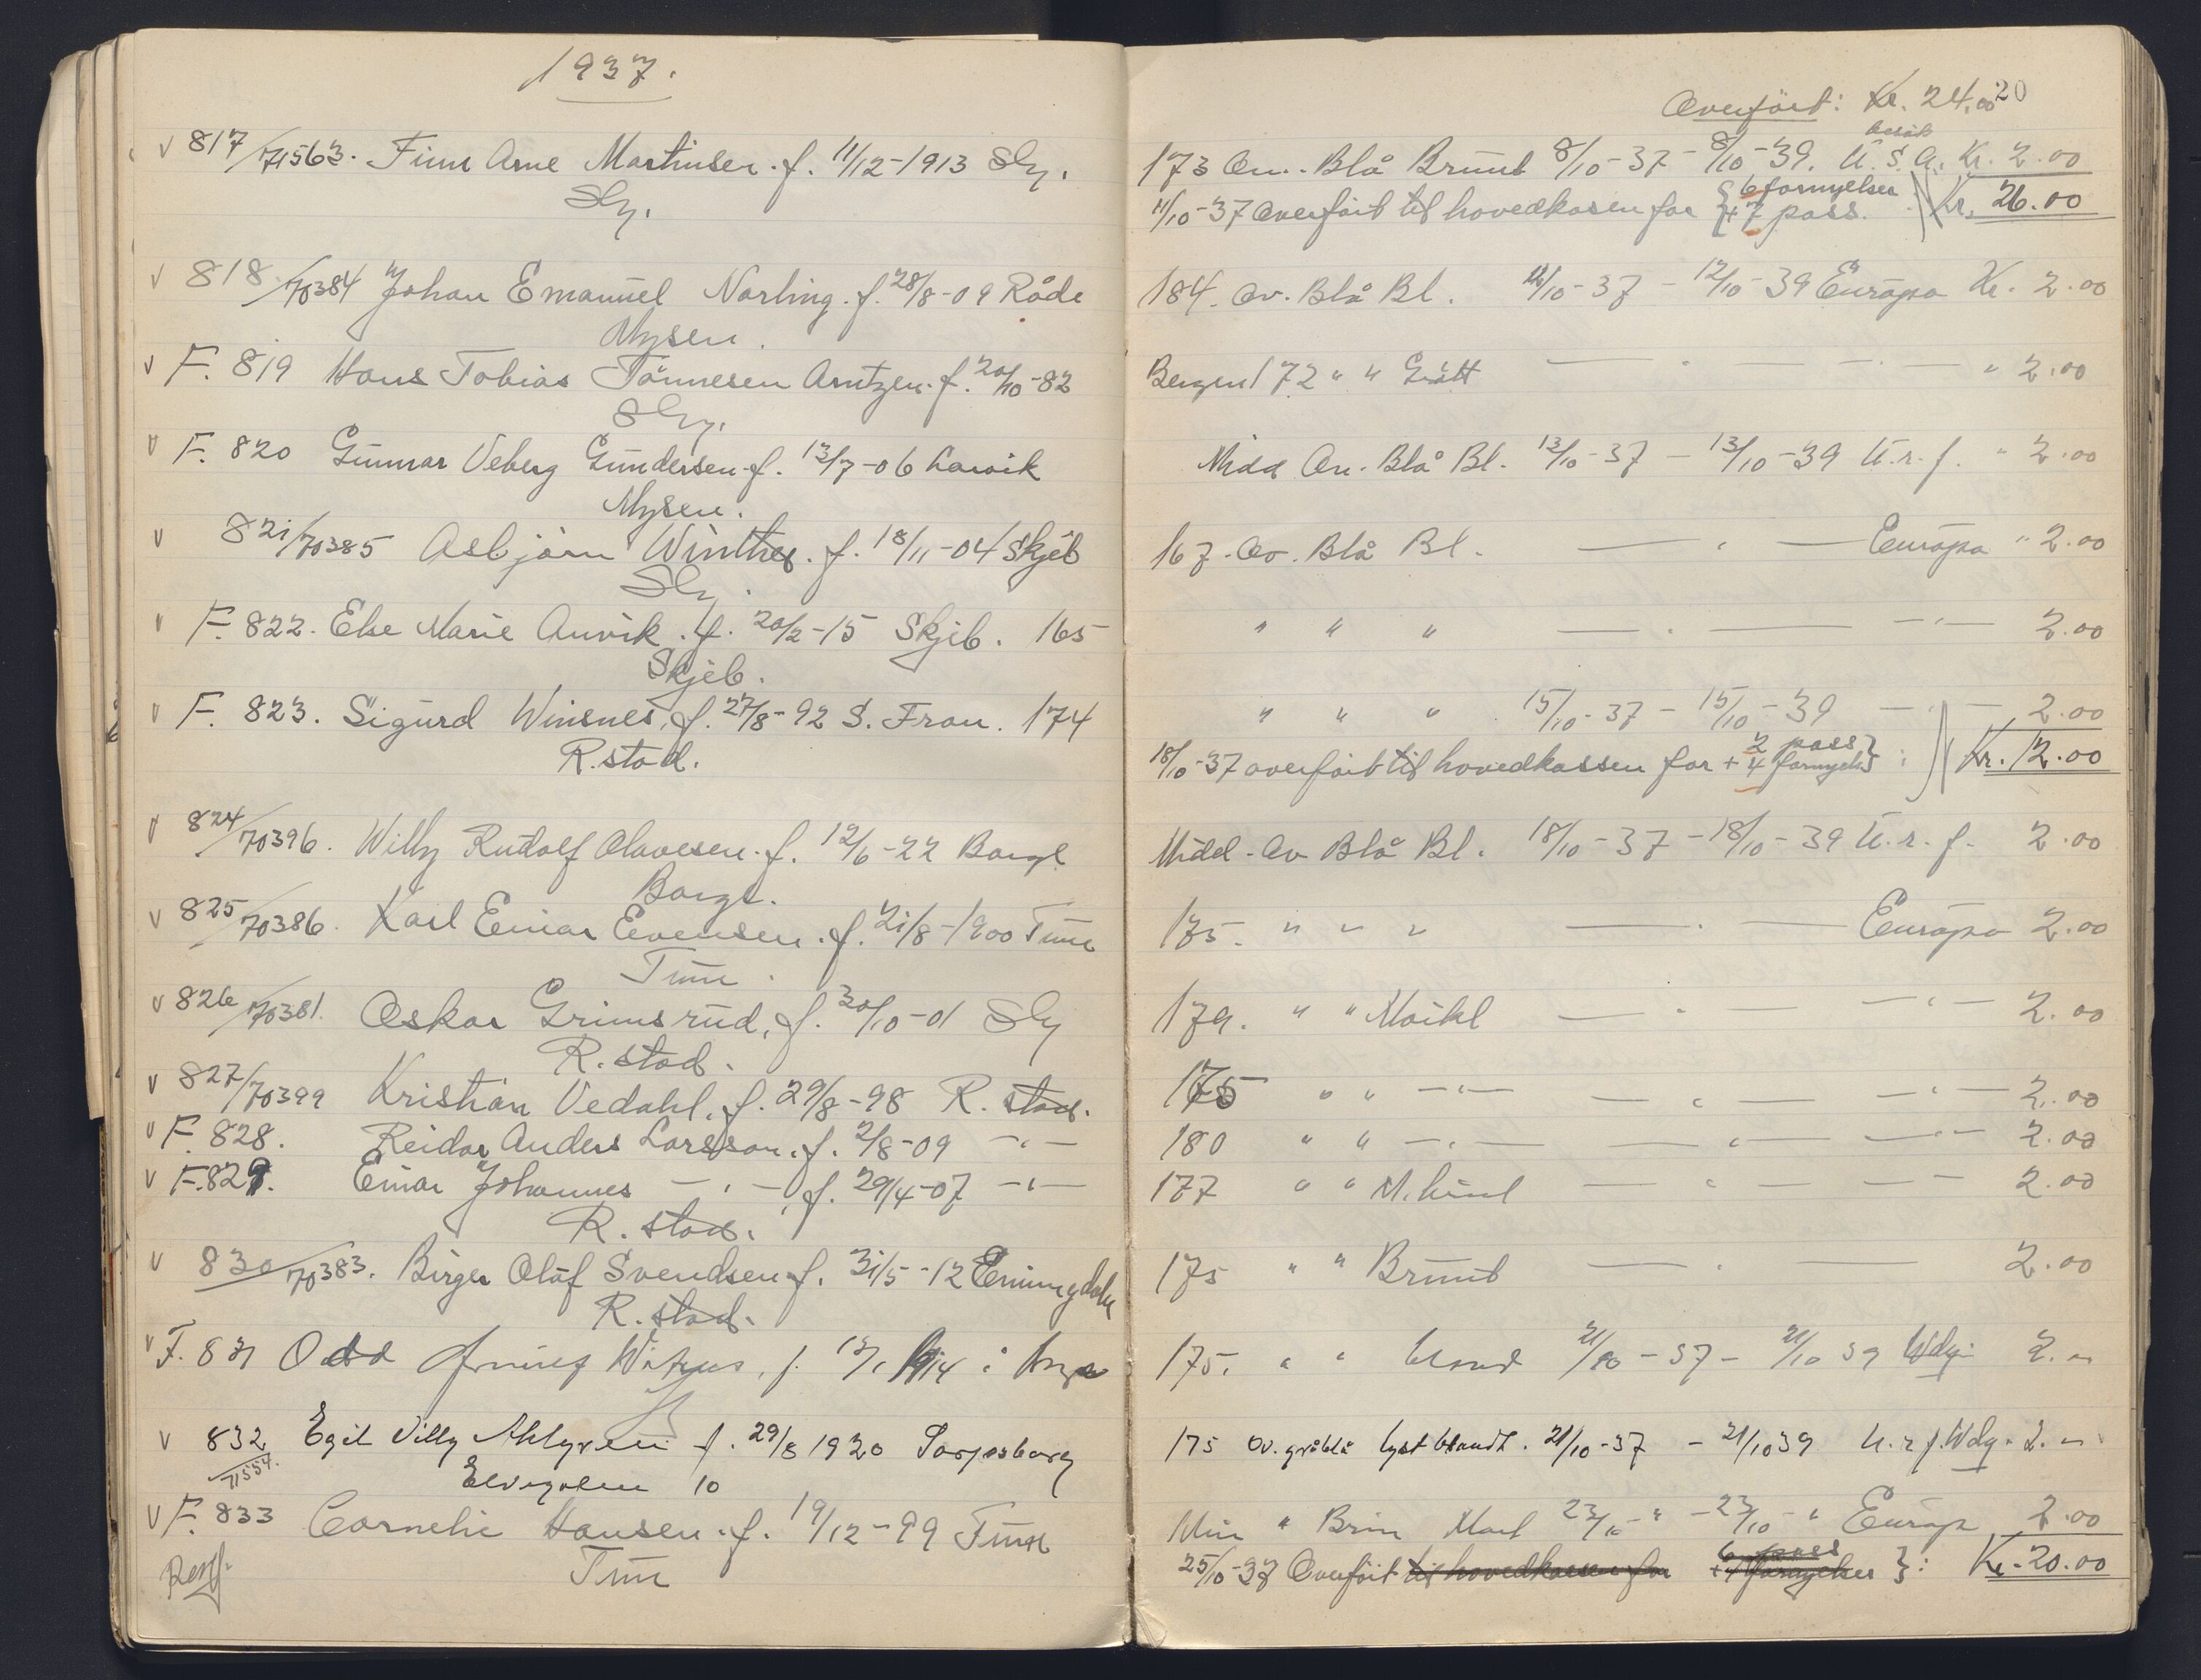 1937.
817/71563. Finn Arne Martinsen. f. 11/12-1913 Sbg.
Sbg.
818/70384 Johan Emanuel Norling. f. 28/8-09 Råde
Mysen.
F. 819 Hans Tobias Tönnesen Arntzen. f. 20/10-82
Sbg.
F. 820 Gunnar Veberg Gundersen. f. 13/7-06 Larvik
Mysen.
821/70385 Asbjörn Winther. f. 18/11-04 Skjeb
Sbg.
F. 822. Else Marie Anvik. f. 20/2-15 Skjeb. 165
Skjeb.
F. 823. Sigurd Winsnes, f. 27/8-92 S. Fron. 174
R.stad.
824/70396. Willy Rudolf Olavesen. f. 12/6-22 Borge
Borge.
825/70386. Karl Einar Evensen. f. 21/8-1900 Tune
Tune.
826/70381. Oskar Grimsrud, f. 30/10-01 Sbg
R. stad.
827/70399 Kristian Vedahl, f. 29/8-98 R. stad.
F. 828. Reidar Anders Larsson. f. 2/8-09 -"-
F. 829. Einar Johannes -"- f. 29/4-07 -"-
R. stad.
830/70383. Birger Olaf Svendsen f. 31/5-12 Enningdalen
R. stad.
F. 831 Odd f. 1914 i
832/71554. Egil Villy Ahlgren f. 29/8 1920 Sarpsborg
10
F. 833 Cornelie Hansen. f. 19/12-99 Tune
Tune
Overfört: Kr. 24.00 20
besök
173 Ov. Blå Brunt 8/10-37 - 8/10-39. U.S.A. Kr. 2.00
11/10-37 Overfört til hovedkasen for { 6 fornyelser + 7 pass. Kr. 26.00
184. Ov. Blå Bl. 12/10-37 - 12/10-39 Europa Kr. 2.00
Bergen 172 " " Grått — " — — " — " 2.00
Midd Ov. Blå Bl. 13/10-37 - 13/10-39 U.r.f. " 2.00
167. Ov. Blå Bl. — " — Europa " 2.00
" " " — " — — " — 2.00
" " " 15/10-37 - 15/10-39 — " — 2.00
18/10-37 overfört til hovedkassen for 2 pass + 4 fornyels } : Kr. 12.00
Midd. Ov Blå Bl. 18/10-37 - 18/10-39 U.r.f. 2.00
175. " " " — " — Europa 2.00
179. " " Mörkl — " — — " — 2.00
175 " " -"- — " — — " — 2.00
180 " " -"- — " — — " — 2.00
177 " " — " — — — 2.00
175 " " Brunt — " — 2.00
175. " " blond 21/10-37 - 21/10 39 Wdg. 2.-
175 Ov. gråblå lyst blandt. 21/10-37 - 21/10 39 U.r.f. Wdg. 2.-
Min " Brun Mørk 23/10-" - 23/10-" Europ 2.00
25/10-37 Overfört til hovedkassen for 6 pass + 4 fornyelser } : Kr. 20.00